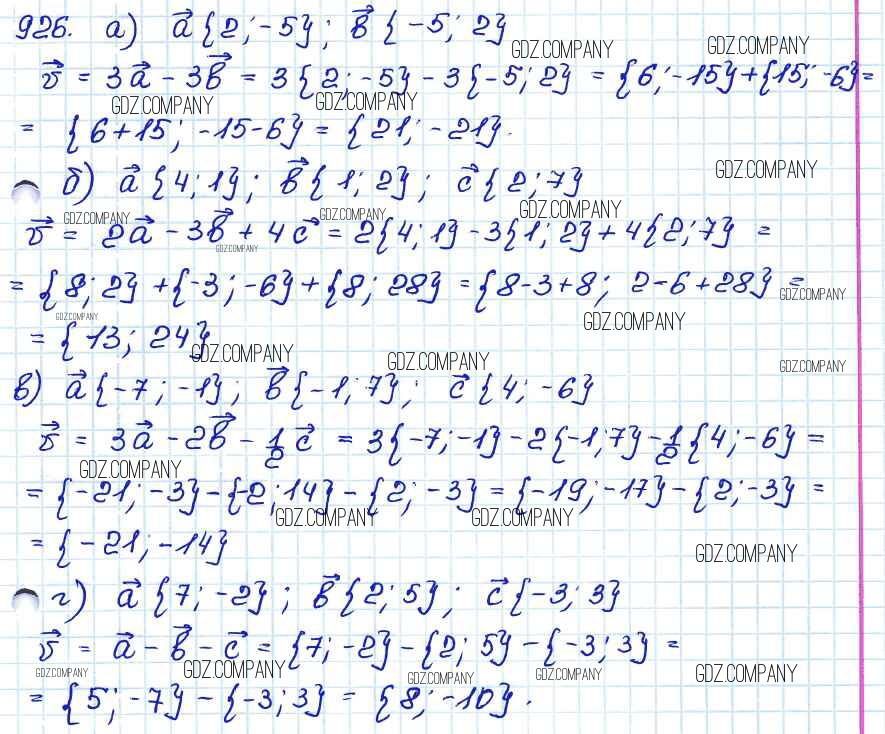 926. а) a⃗ {2; -5}; b⃗ {-5; 2}
GDZ.COMPANY GDZ.COMPANY
v⃗ = 3a⃗ - 3b⃗ = 3{2; -5} - 3{-5; 2} = {6; -15} + {15; -6} =
GDZ.COMPANY GDZ.COMPANY
= {6+15; -15-6} = {21; -21}.
GDZ.COMPANY
б) a⃗ {4; 1}; b⃗ {1; 2}; c⃗ {2; 7}
GDZ.COMPANY GDZ.COMPANY GDZ.COMPANY
v⃗ = 2a⃗ - 3b⃗ + 4c⃗ = 2{4; 1} - 3{1; 2} + 4{2; 7} =
GDZ.COMPANY
= {8; 2} + {-3; -6} + {8; 28} = {8-3+8; 2-6+28} =
GDZ.COMPANY
GDZ.COMPANY GDZ.COMPANY
= {13; 24}
GDZ.COMPANY GDZ.COMPANY GDZ.COMPANY
в) a⃗ {-7; -1}; b⃗ {-1; 7}; c⃗ {4; -6}
v⃗ = 3a⃗ - 2b⃗ - 1/2 c⃗ = 3{-7; -1} - 2{-1; 7} - 1/2 {4; -6} =
GDZ.COMPANY
= {-21; -3} - {-2; 14} - {2; -3} = {-19; -17} - {2; -3} =
GDZ.COMPANY GDZ.COMPANY
= {-21; -14}
GDZ.COMPANY
г) a⃗ {7; -2}; b⃗ {2; 5}; c⃗ {-3; 3}
v⃗ = a⃗ - b⃗ - c⃗ = {7; -2} - {2; 5} - {-3; 3} =
GDZ.COMPANY GDZ.COMPANY GDZ.COMPANY GDZ.COMPANY GDZ.COMPANY
= {5; -7} - {-3; 3} = {8; -10}.